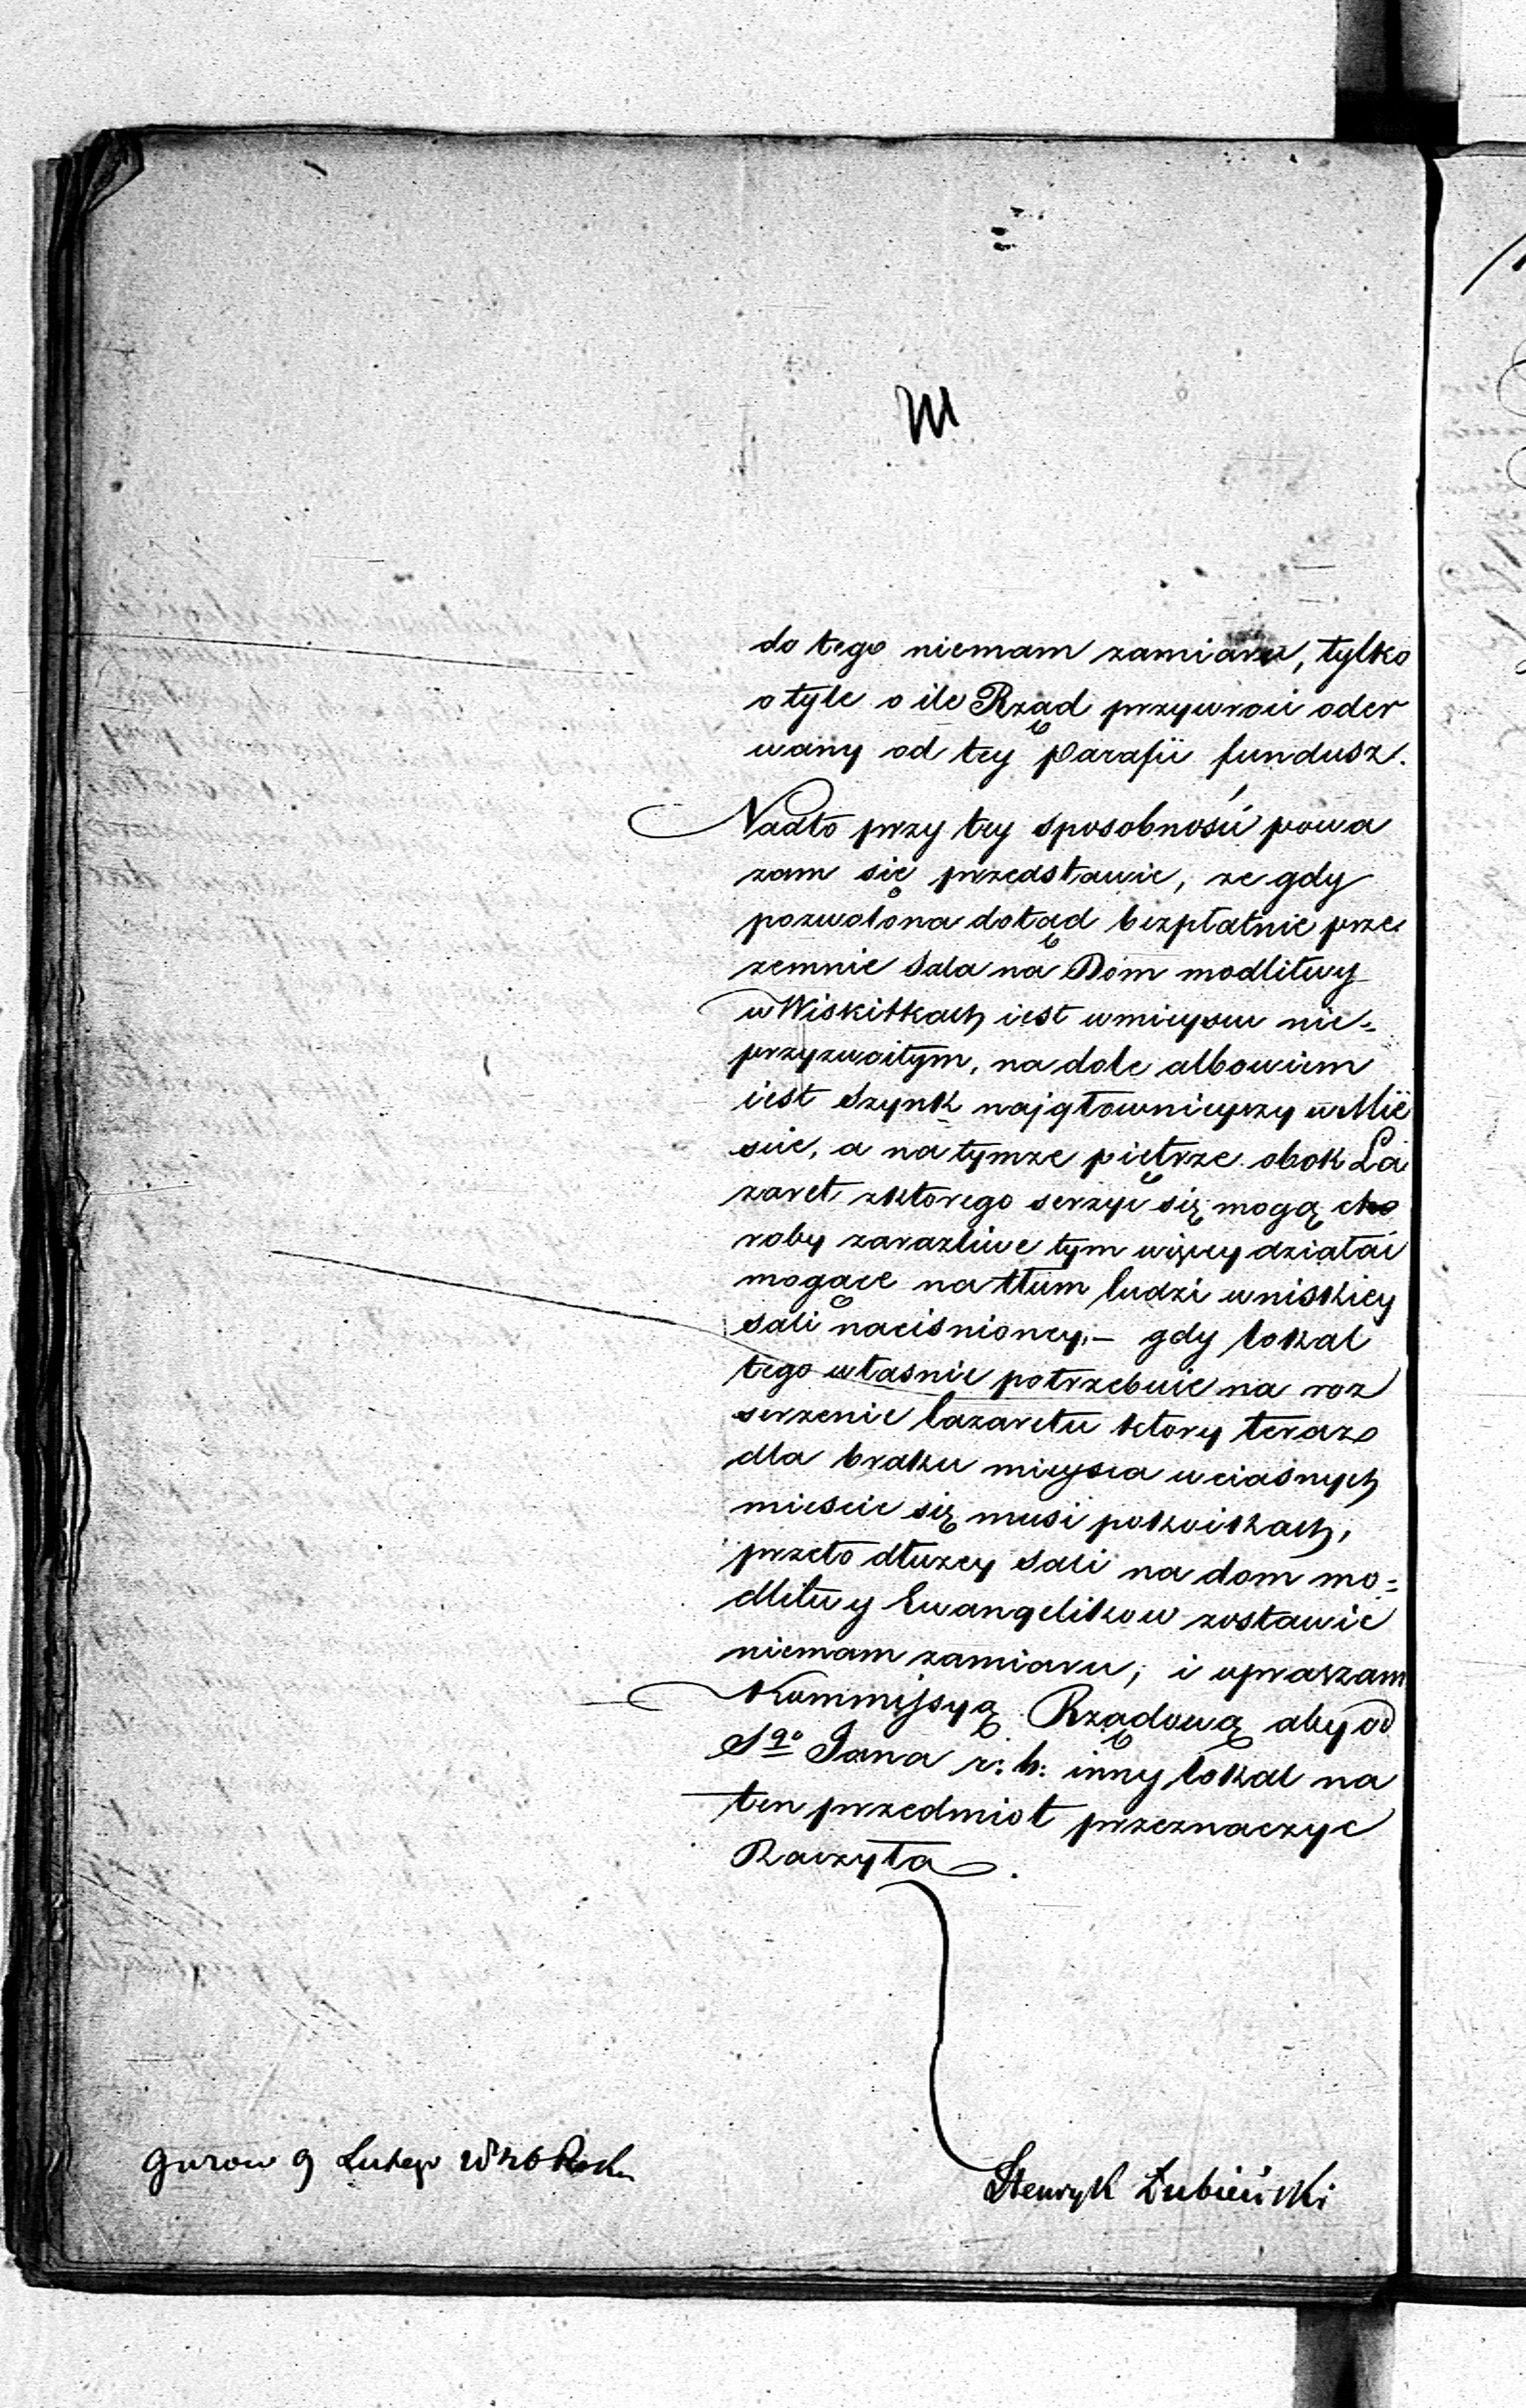 do tego niemam zamiaru, tylko
o tyle o ile Rząd przywroci oder
wany od tey Parafii fundusz.
Nadto przy tey sposobności powa
zam się przedstawic, ze gdy
pozwolona dotąd bezpłatnie prze
zemnie Sala na Dom modlitwy
w Wiskitkach iest w mieyscu nie=
przyzwoitym, na dole albowiem
iest Szynk najgłownieyszy w Mie
scie, a na tymze piętrze obok La
zaret z ktorego serzyc się mogą cho
roby zarazliwe tym więcey działać
mogące na tłum ludzi w niskiey
sali nacisnioney, – gdy lokal
tego własnie potrzebuie na roz
serzenie lazaretu ktory teraz
dla braku mieysca w ciasnych
miescic się musi pokoikach,
przeto dłuzey Sali na dom mo=
dlitwy Ewangelikow zostawic
niemam zamiaru; i upraszam
Kommissyą Rządową aby od
Sgo Jana r: b: inny lokal na
ten przedmiot przeznaczyc
Raczyła.
Guzow 9 Lutego 1826 Roku
Henryk Łubieński